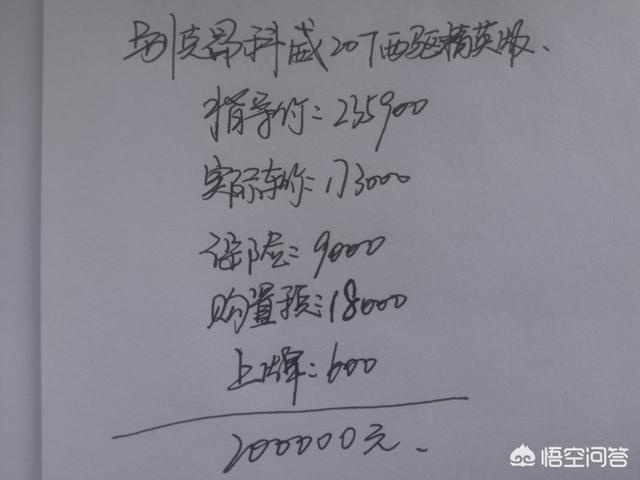 别克昂科威20T两驱精英版、
指导价:235900
实际车价:173000
保险:9000
购置税:18000
上牌:600
200000元.
悟空问答